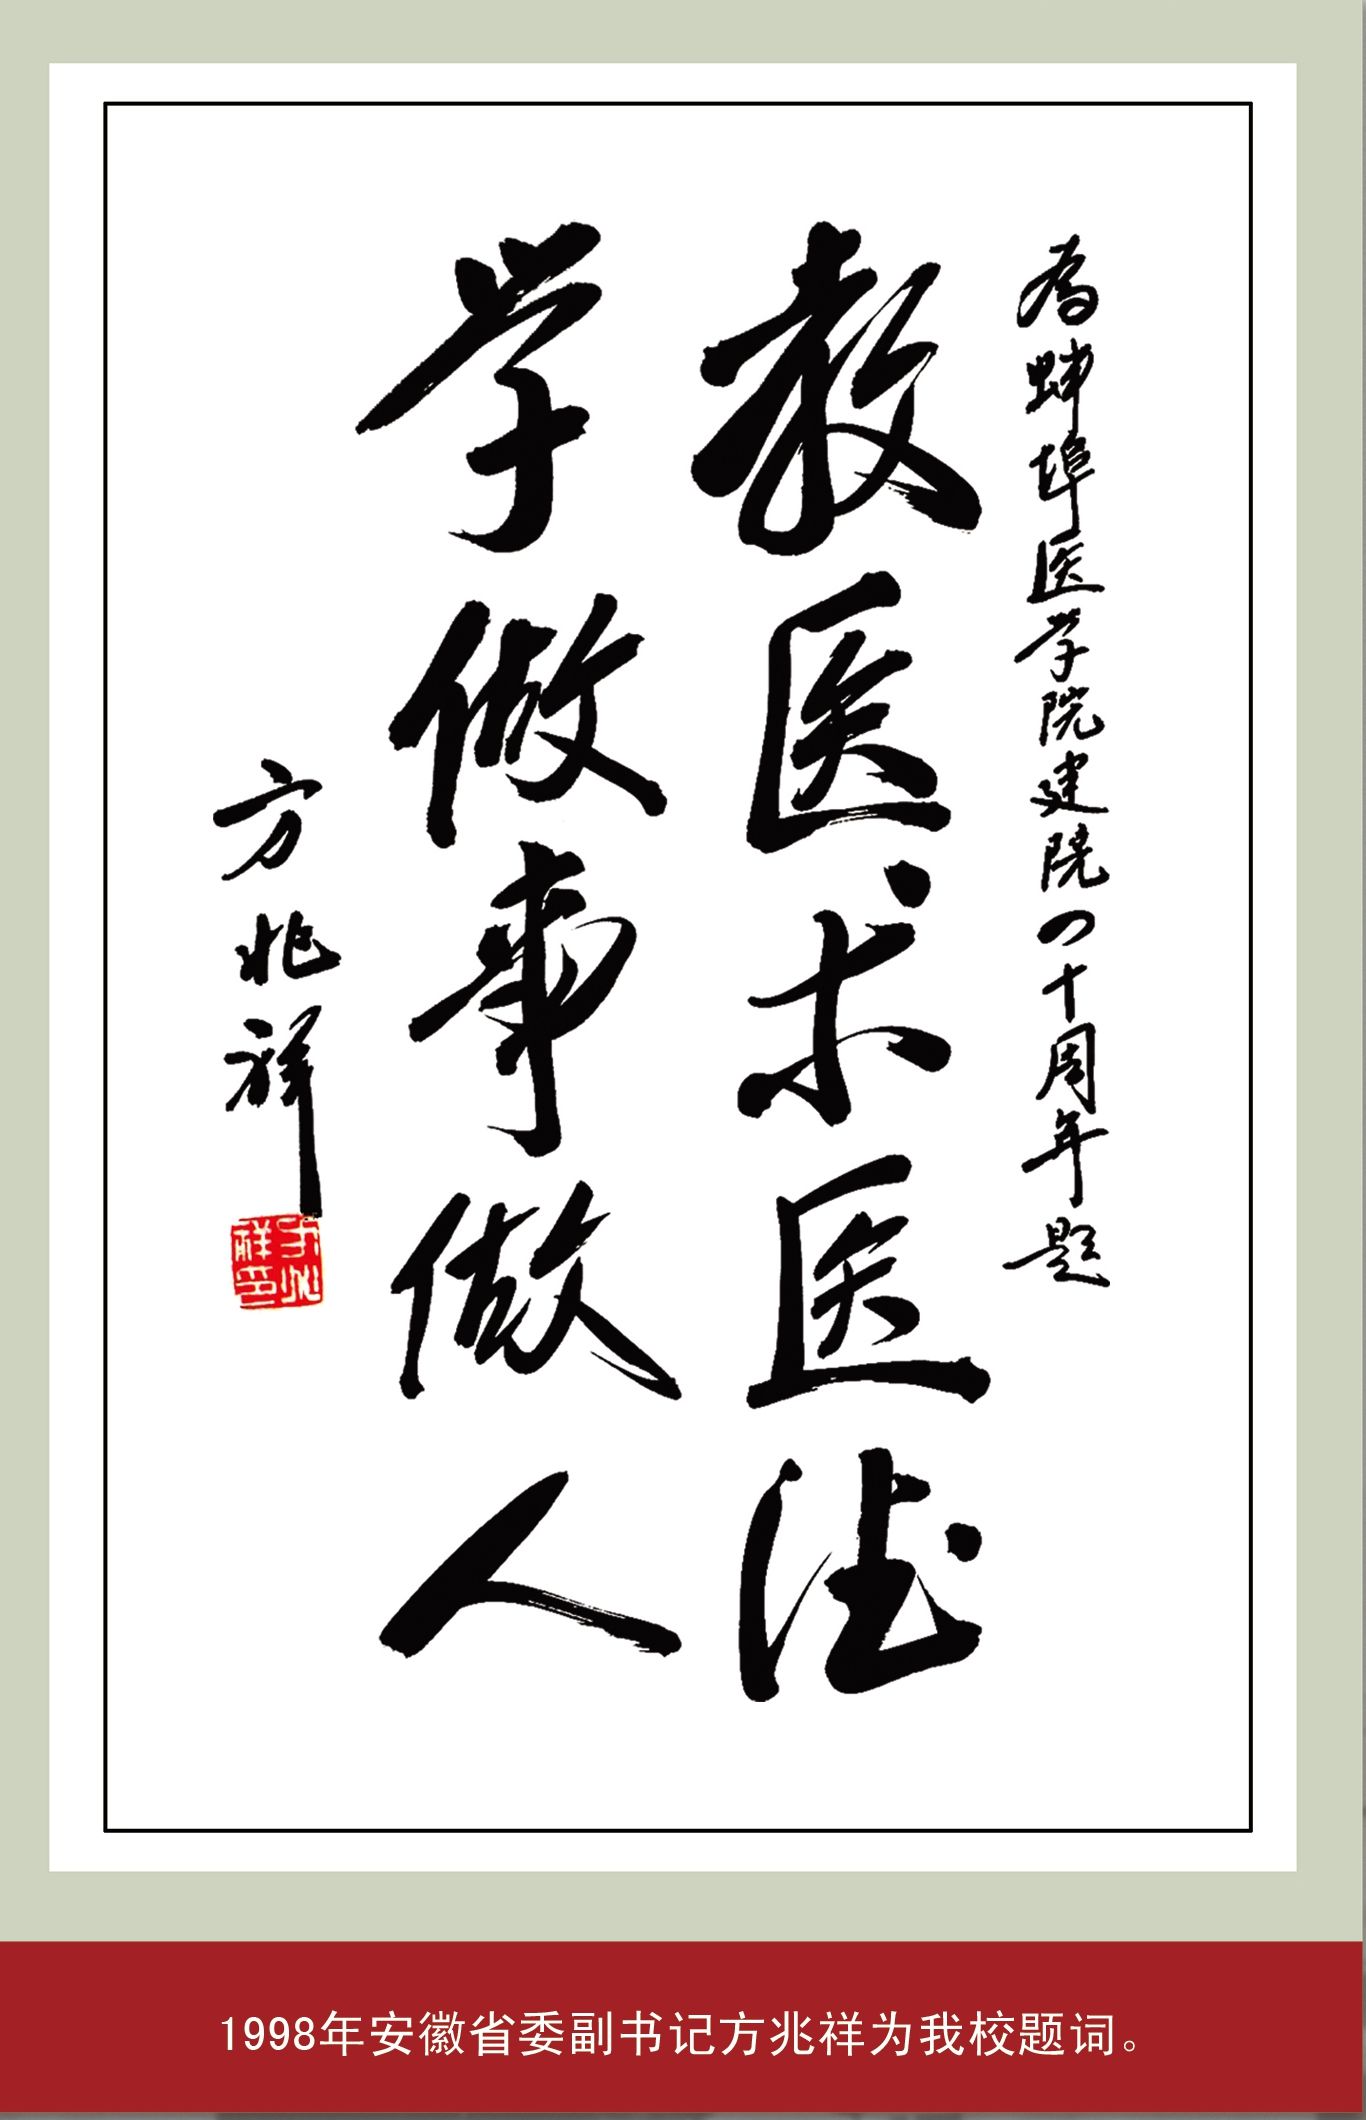 为蚌埠医学院建院四十周年题
教医术医德
学做事做人
方兆祥
方兆祥印
1998年安徽省委副书记方兆祥为我校题词。